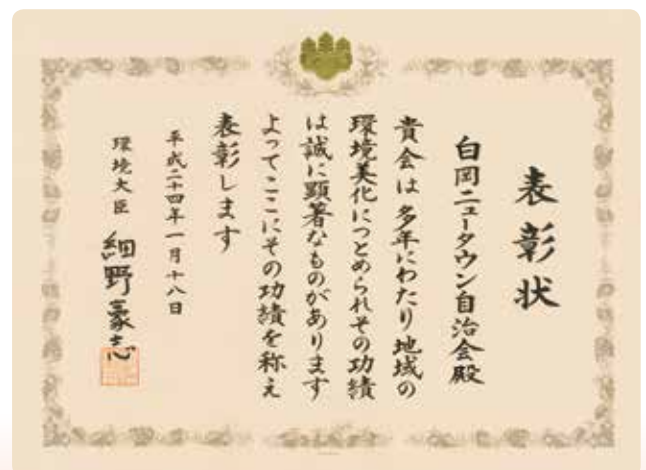 表彰状
白岡ニュータウン自治会殿
貴会は多年にわたり地域の
環境美化につとめられその功績
は誠に顕著なものがあります
よってここにその功績を称え
表彰します
平成二十四年一月十八日
環境大臣 細野豪志